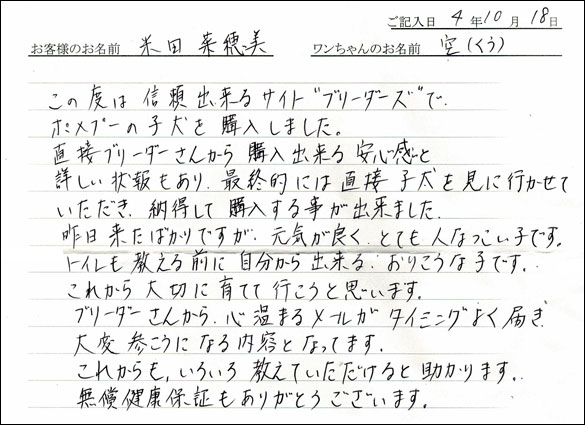 ご記入日 4年10月18日
お客様のお名前 米田菜穂美 ワンちゃんのお名前 空(くう)
この度は信頼出来るサイト"ブリーダーズ"で、
ポメプーの子犬を購入しました。
直接ブリーダーさんから購入出来る安心感と
詳しい状報もあり、最終的には直接子犬を見に行かせて
いただき、納得して購入する事が出来ました。
昨日来たばかりですが、元気が良く、とても人なつこい子です。
トイレも教える前に自分から出来る、おりこうな子です。
これから大切に育てて行こうと思います。
ブリーダーさんから、心温まるメールがタイミングよく届き、
大変参こうになる内容となってます。
これからも、いろいろ教えていただけると助かります。
無償健康保証もありがとうございます。